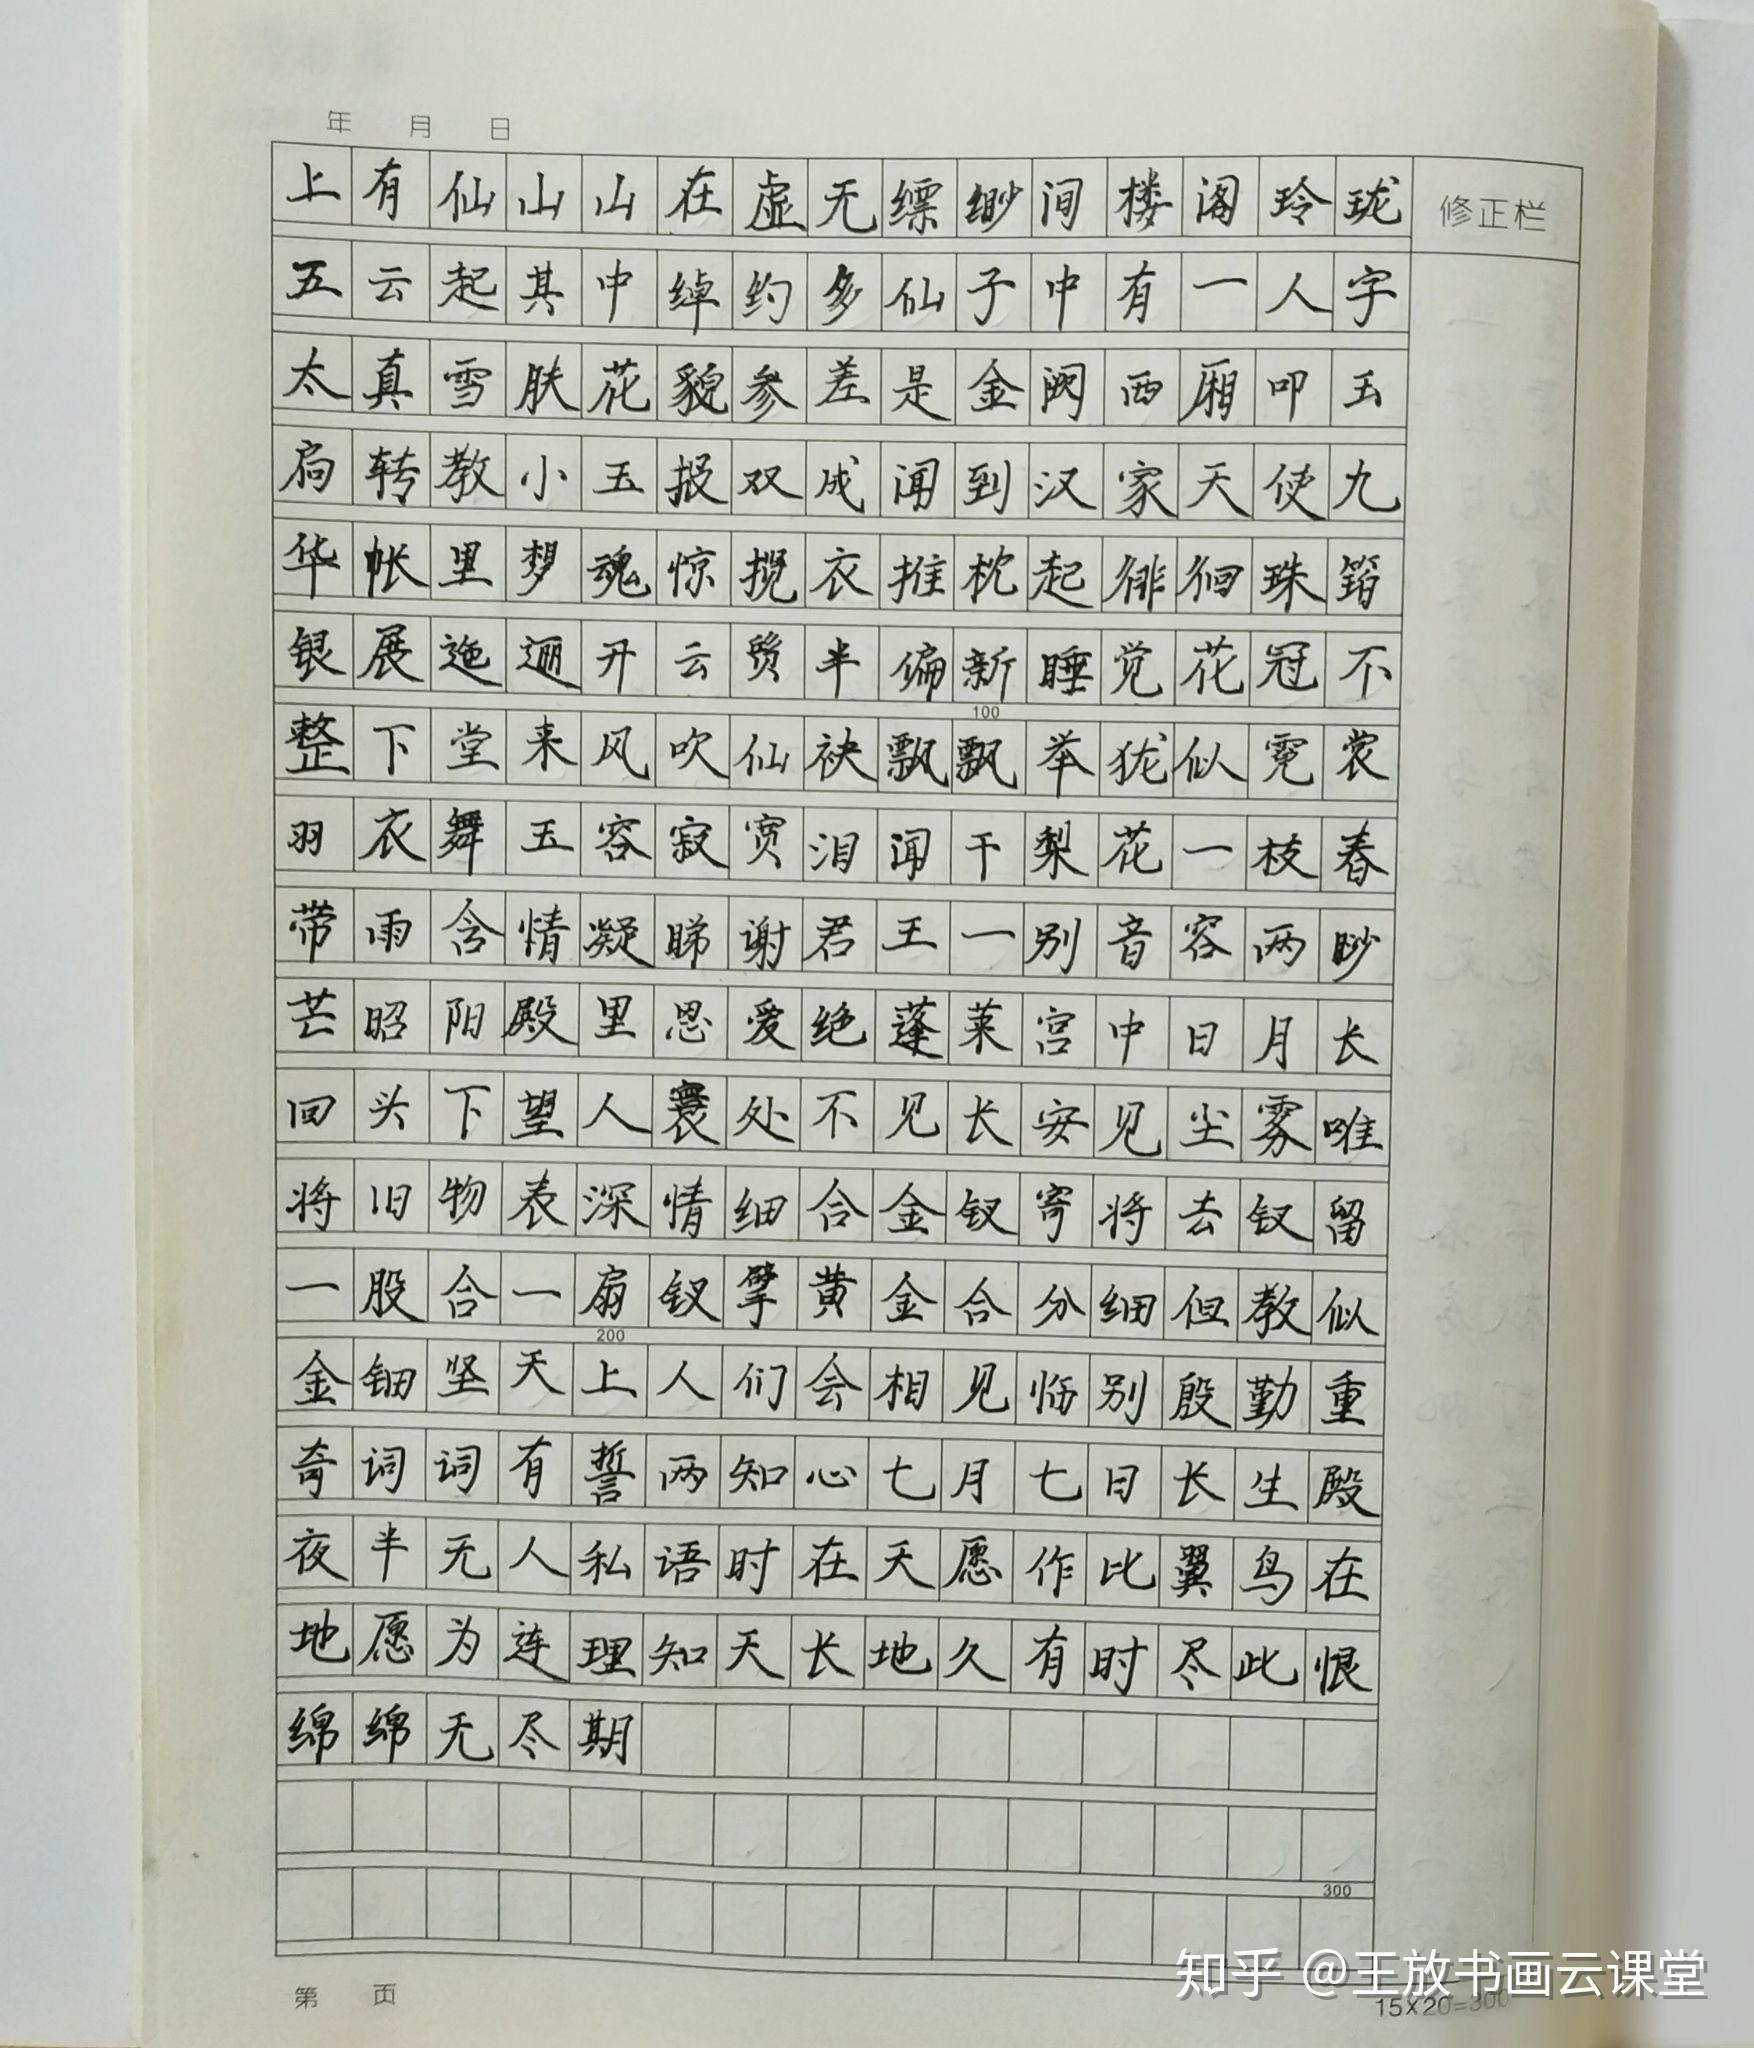 年 月 日
上有仙山山在虚无缥缈间楼阁玲珑
修正栏
五云起其中绰约多仙子中有一人字
太真雪肤花貌参差是金阙西厢叩玉
扃转教小玉报双成闻到汉家天使九
华帐里梦魂惊揽衣推枕起徘徊珠箔
银展迤逦开云鬓半偏新睡觉花冠不
100
整下堂来风吹仙袂飘飘举犹似霓裳
羽衣舞玉容寂寞泪闻干梨花一枝春
带雨含情凝睇谢君王一别音容两眇
芒昭阳殿里恩爱绝蓬莱宫中日月长
回头下望人寰处不见长安见尘雾唯
将旧物表深情细合金钗寄将去钗留
一股合一扇钗擘黄金合分细但教似
200
金钿坚天上人们会相见临别殷勤重
寄词词有誓两知心七月七日长生殿
夜半无人私语时在天愿作比翼鸟在
地愿为连理知天长地久有时尽此恨
绵绵无尽期
300
第 页
知乎 @王放书画云课堂
15×20=300